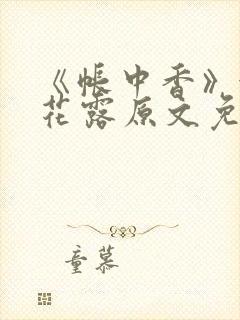 《帐中香》
花露原文免
童慕